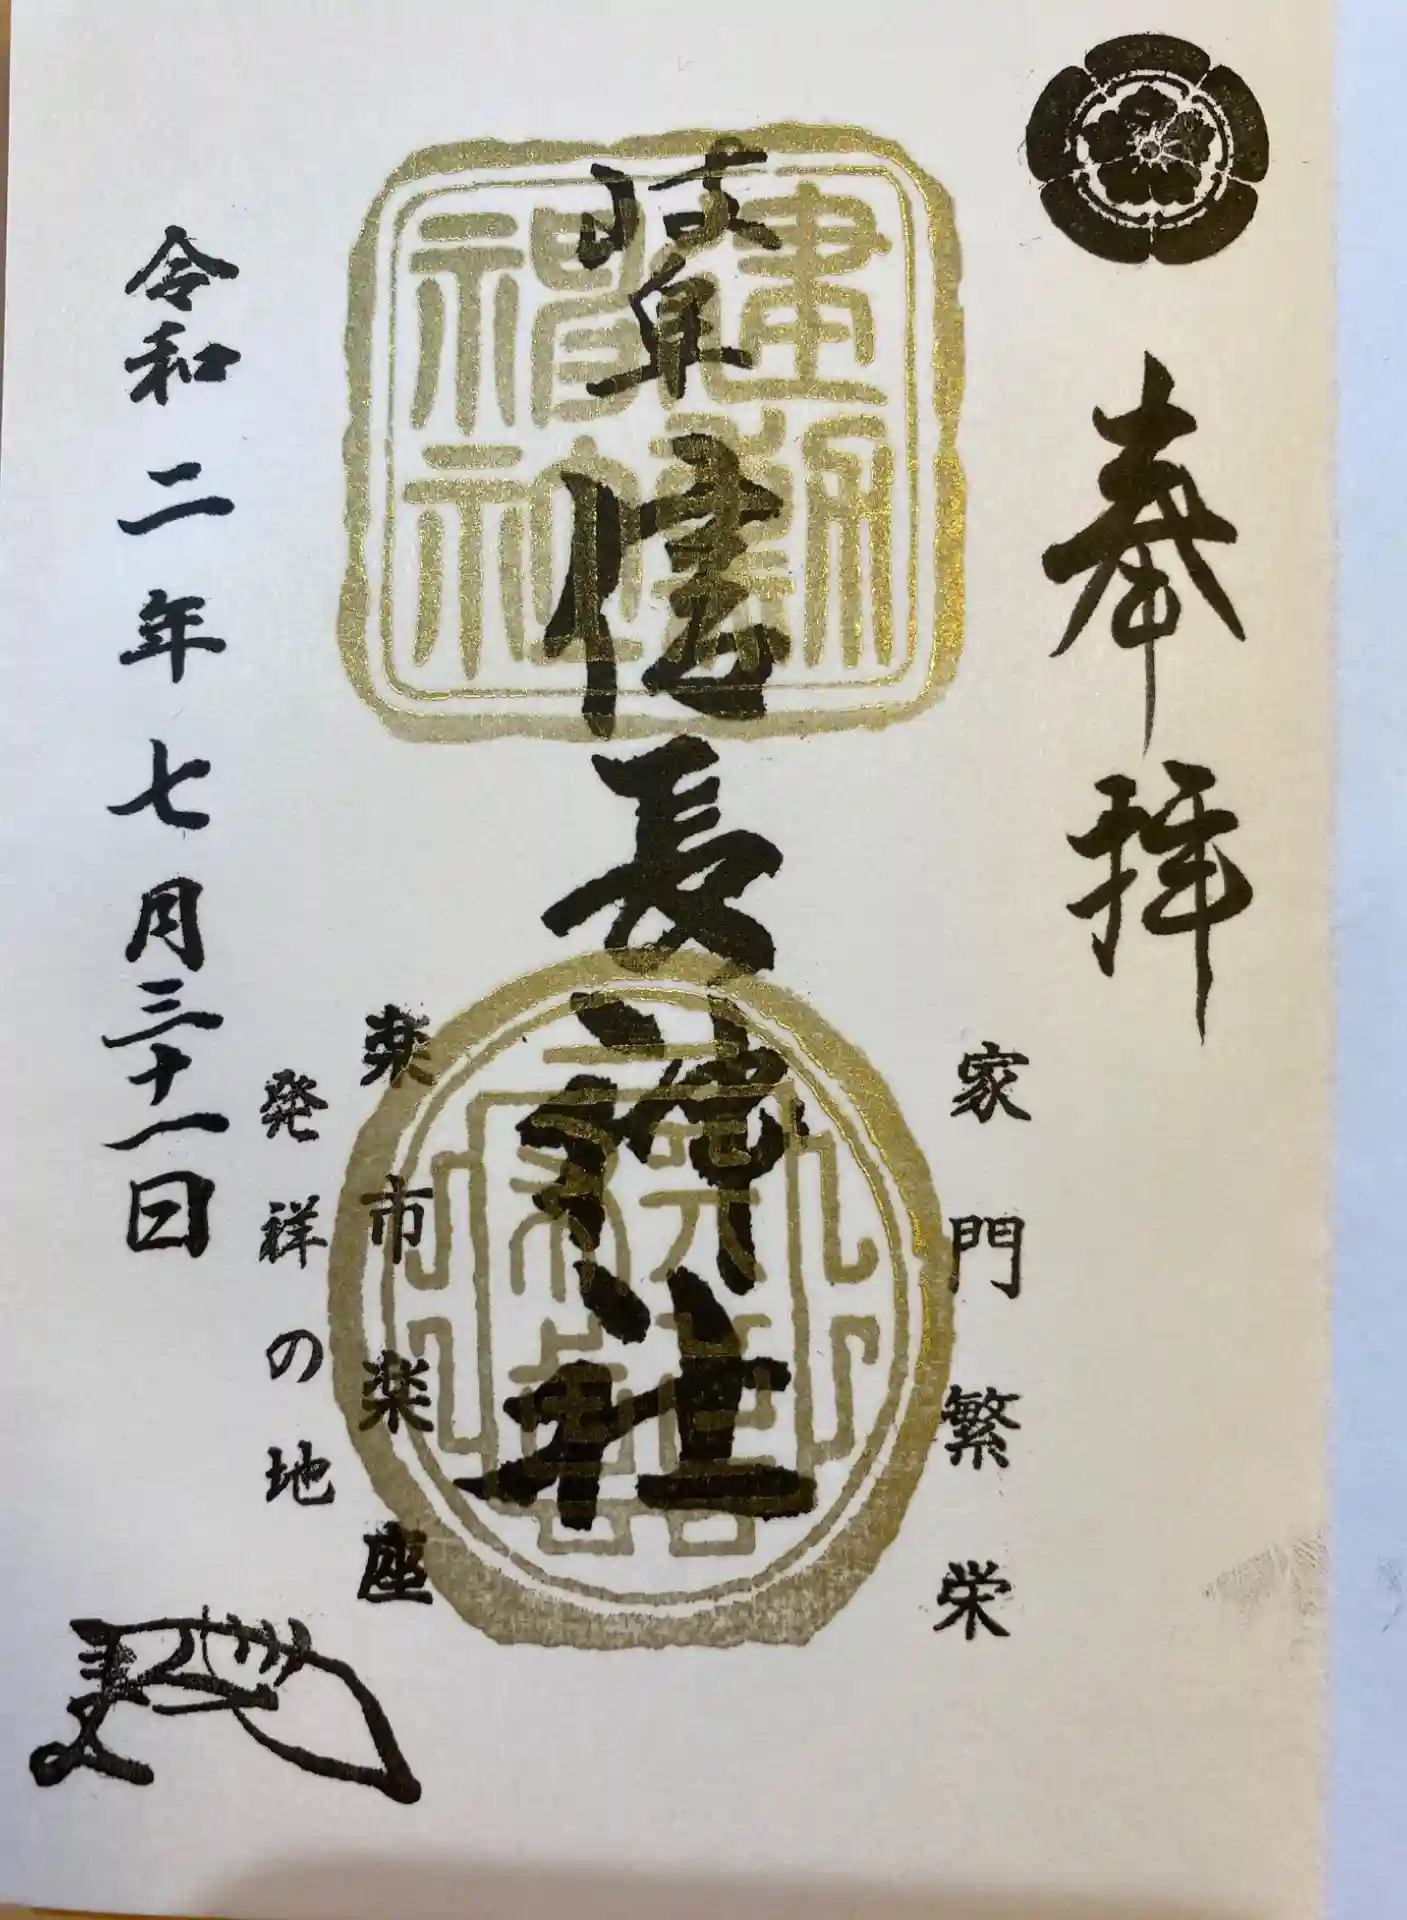 奉拝
家門繁栄
岐阜信長神社
建勲神社
楽市楽座
発祥の地
令和二年七月三十一日